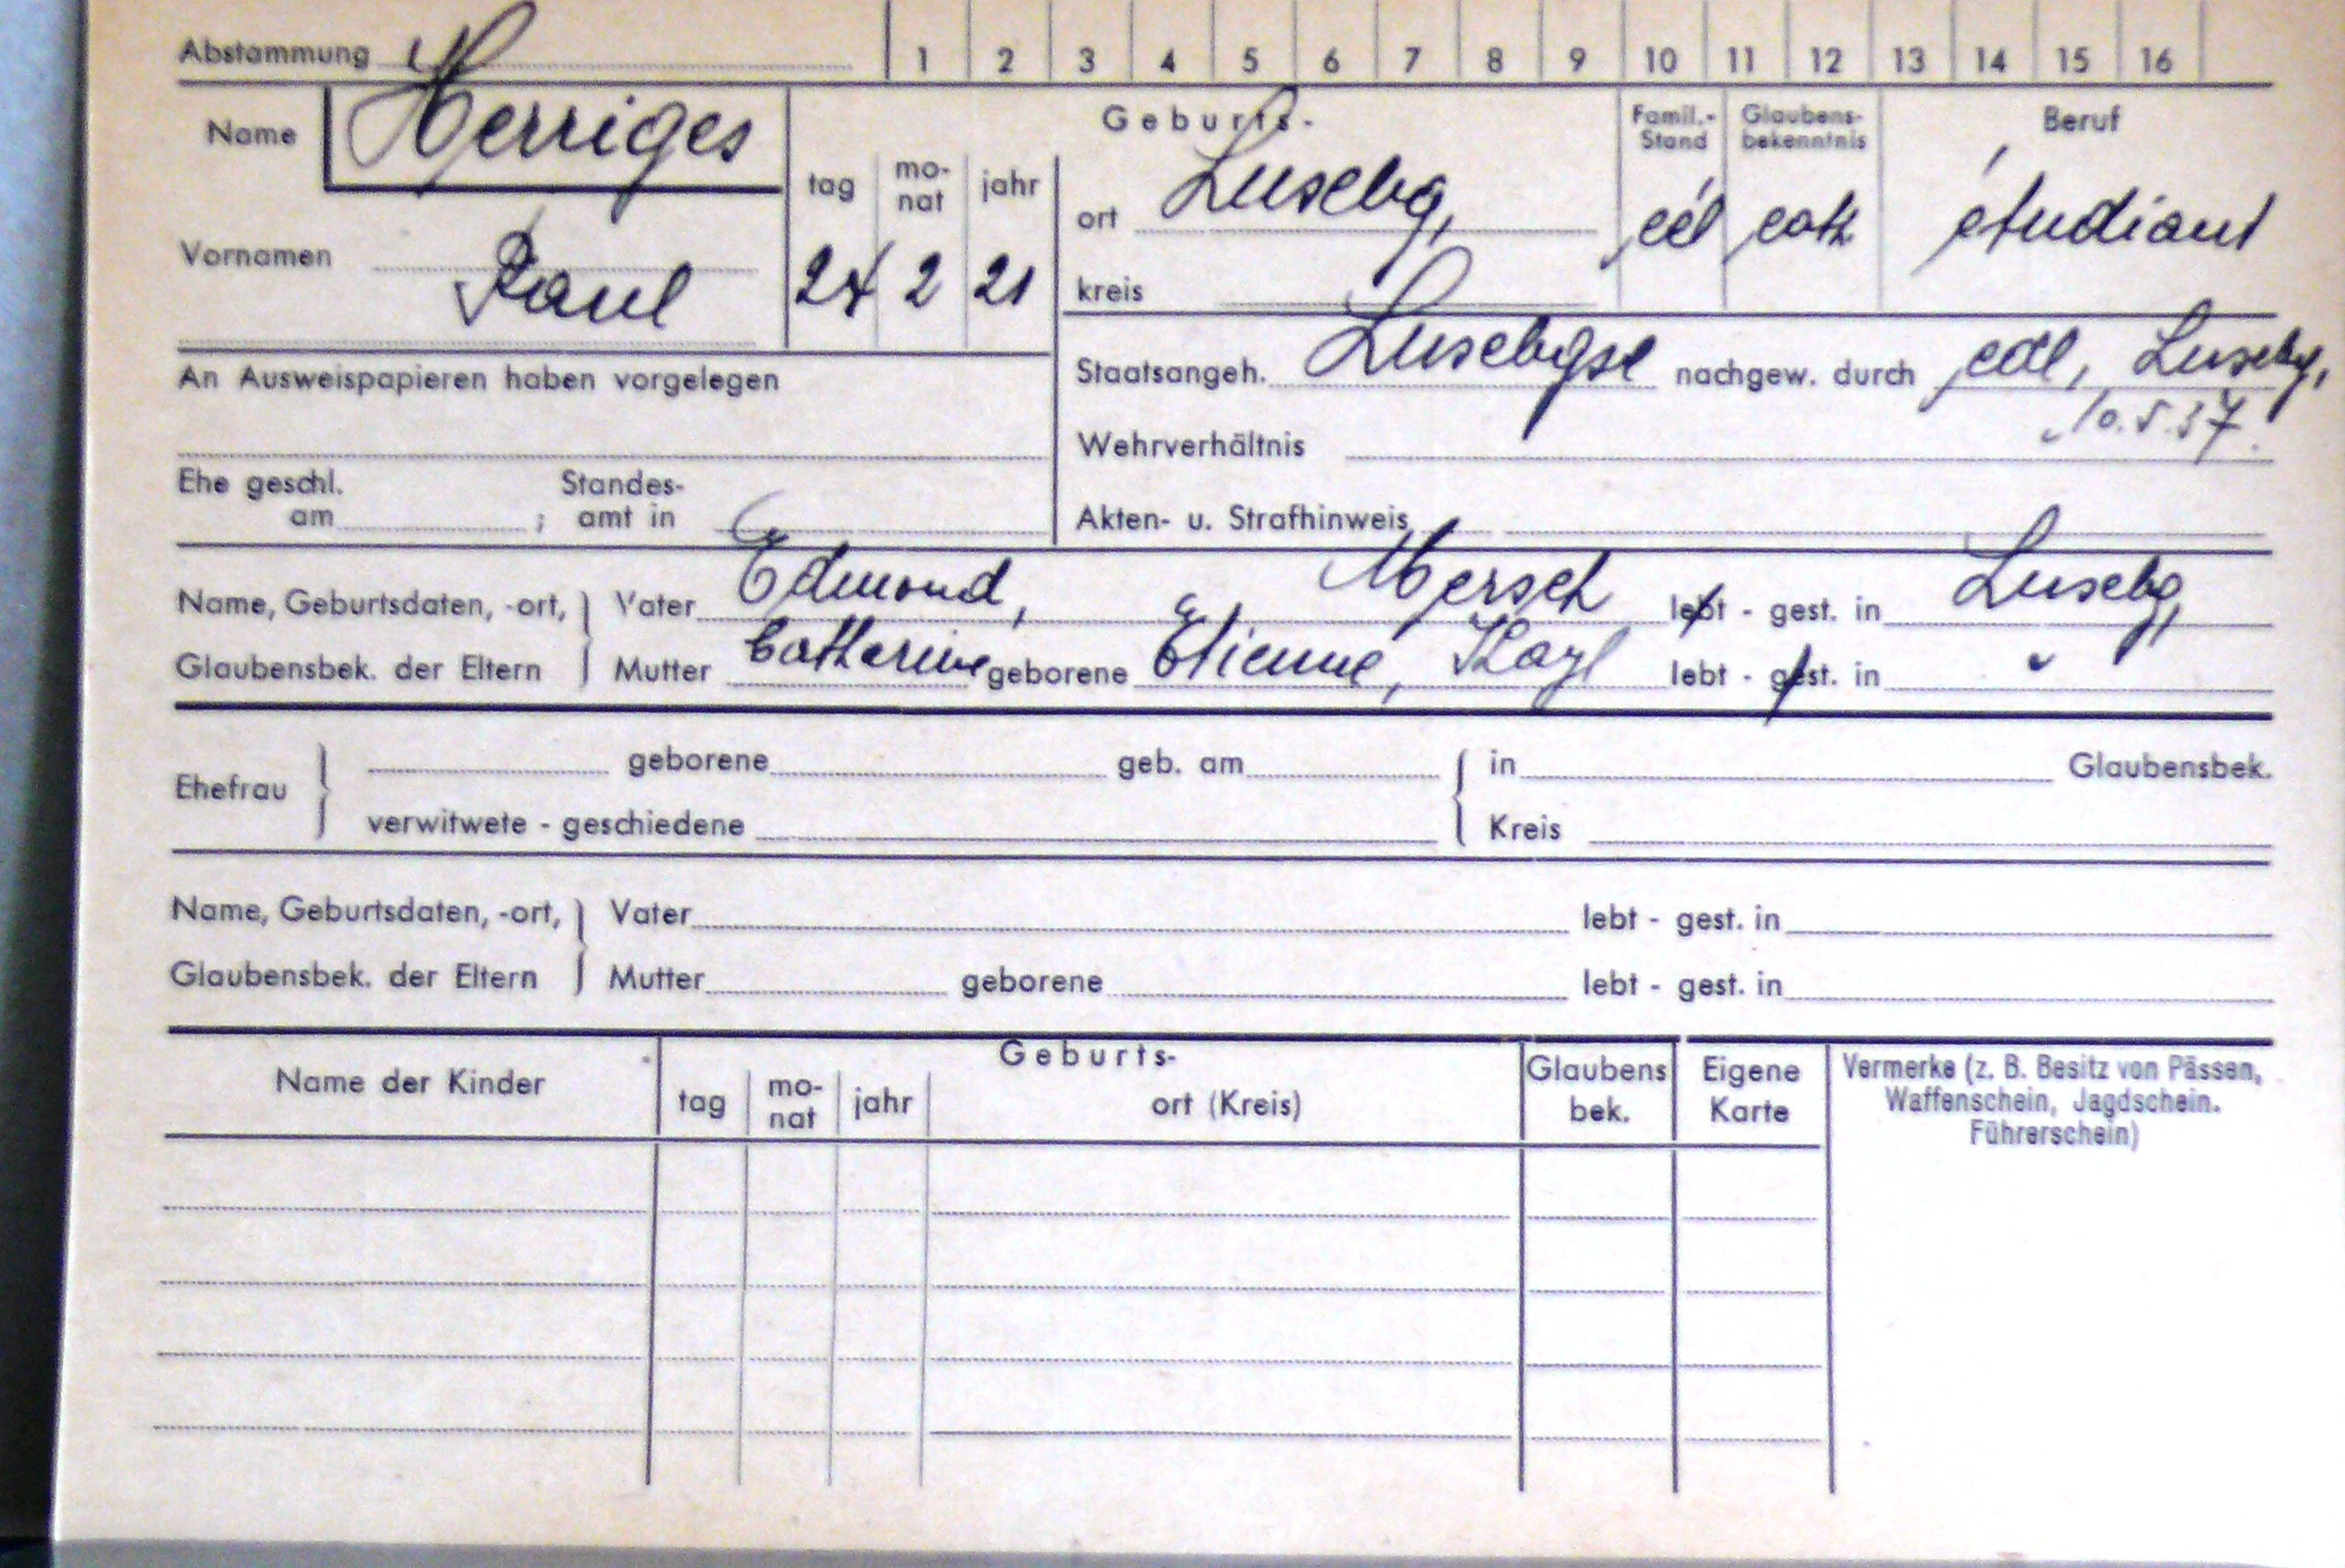 Abstammung 1 2 3 4 5 6 7 8 9 10 11 12 13 14 15 16
Name Herriges
Geburts-
Famil.-Stand
Glaubens-bekenntnis
Beruf
tag mo-nat jahr
ort Luxebg,
cél cath étudiant
Vornamen Paul
24 2 21
kreis
An Ausweispapieren haben vorgelegen
Staatsangeh. Luxebgse nachgew. durch cdl, Luxebg,
10.5.37.
Wehrverhältnis
Ehe geschl. am ; Standes-amt in
Akten- u. Strafhinweis
Name, Geburtsdaten, -ort, Vater Edmond, Mersch lebt - gest. in Luxebg,
Glaubensbek. der Eltern Mutter Catherine geborene Etienne, Kayl lebt - gest. in "
Ehefrau geborene geb. am in Glaubensbek.
verwitwete - geschiedene Kreis
Name, Geburtsdaten, -ort, Vater lebt - gest. in
Glaubensbek. der Eltern Mutter geborene lebt - gest. in
Name der Kinder
Geburts-
tag mo-nat jahr ort (Kreis)
Glaubens bek.
Eigene Karte
Vermerke (z. B. Besitz von Pässen,
Waffenschein, Jagdschein.
Führerschein)